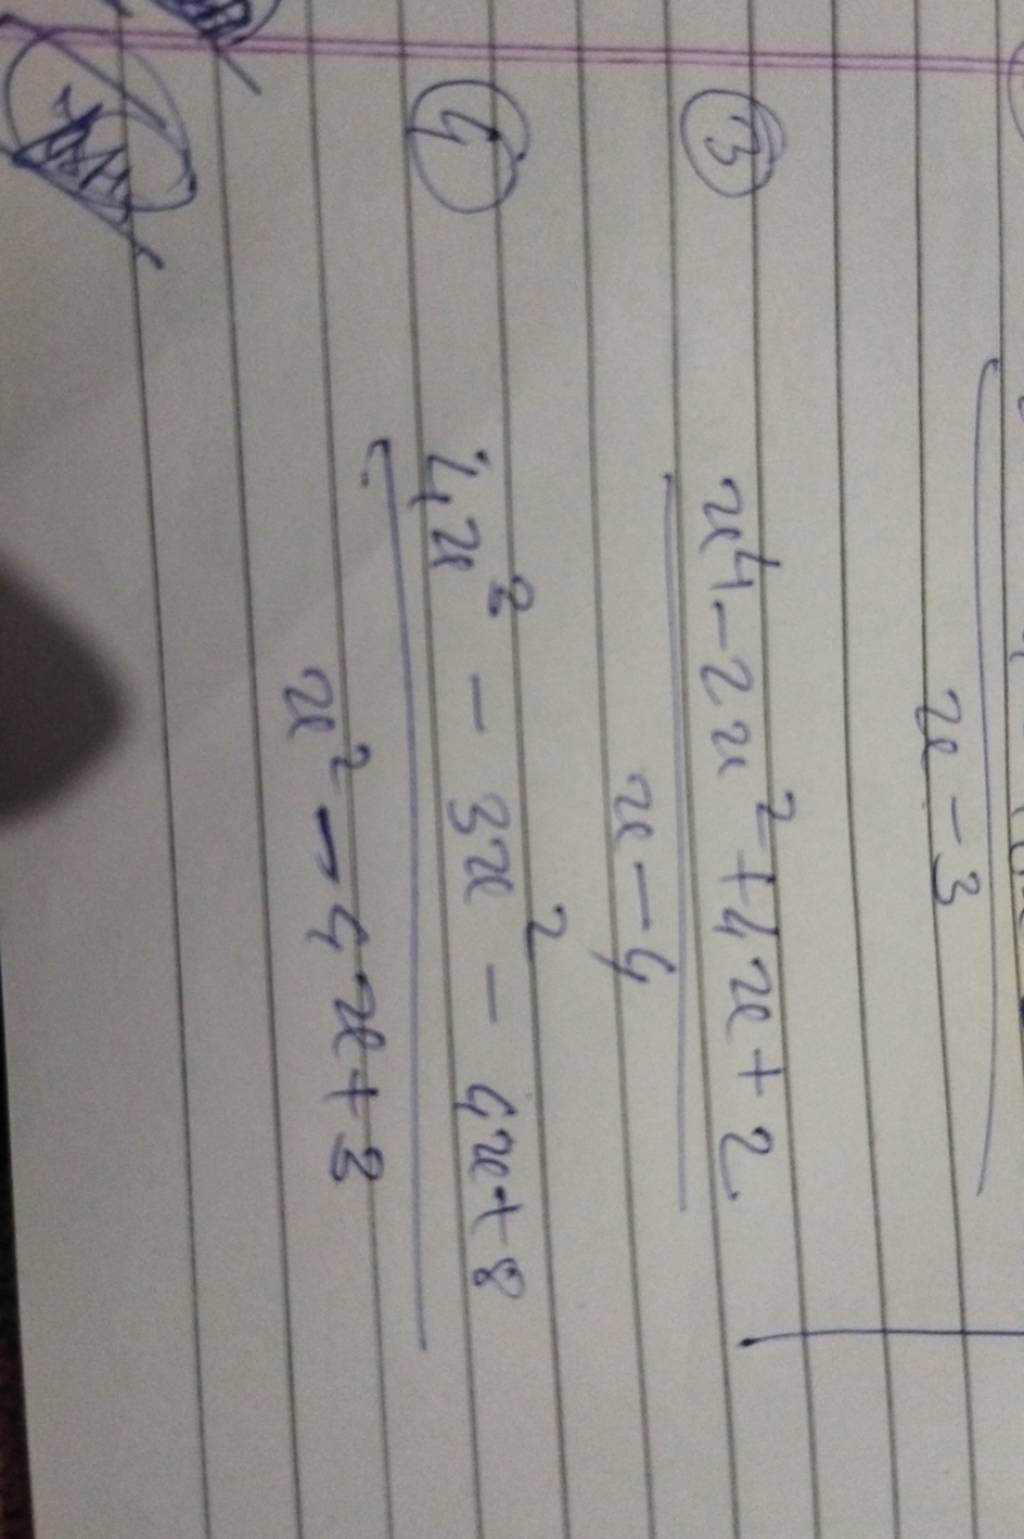 x - 3
③ x⁴ - 2x² + 4x + 2
x - 4
④ 4x⁸ - 3x² - 4x + 8
x² - 4x + 8